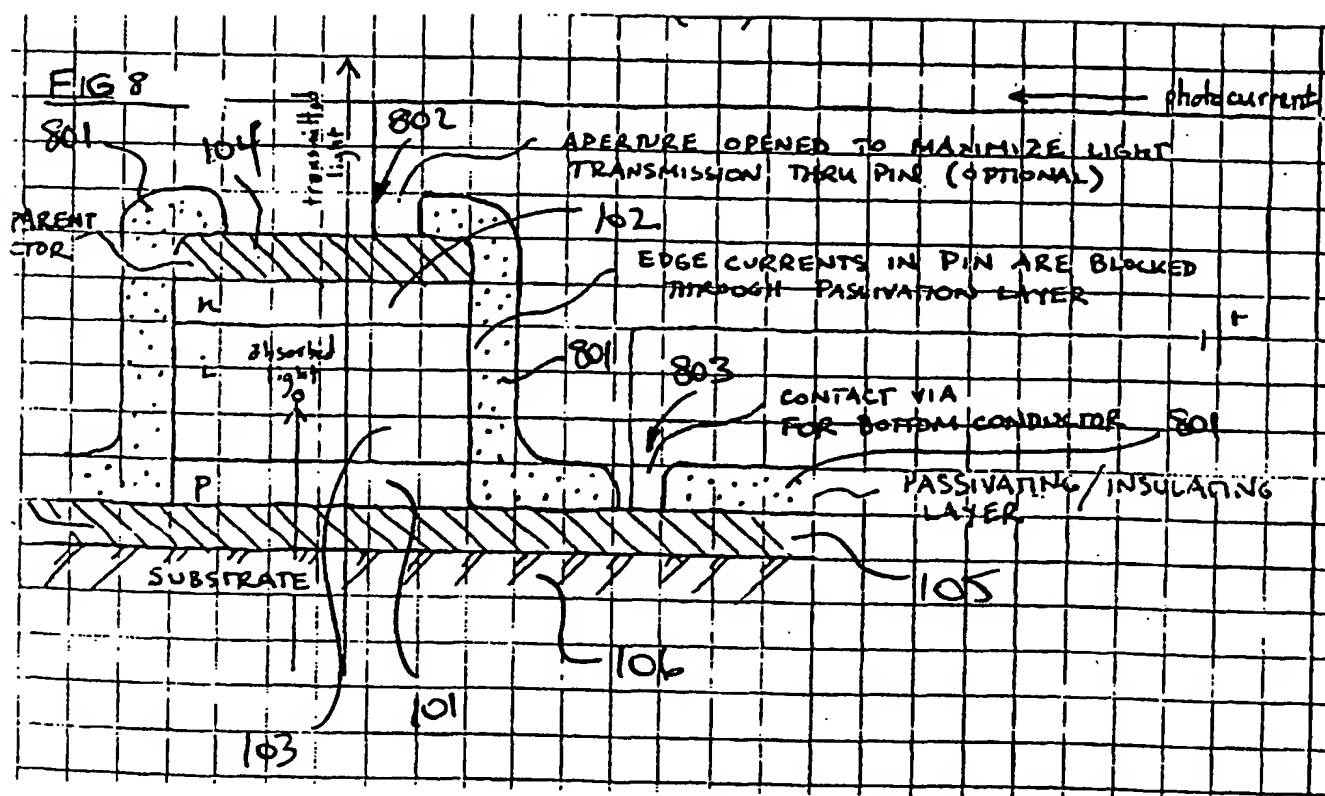 FIG 8
photocurrent
801
104
transmitted
light
802
APERTURE OPENED TO MAXIMIZE LIGHT
TRANSMISSION THRU PIN (OPTIONAL)
PARENT
CTOR
102
EDGE CURRENTS IN PIN ARE BLOCKED
THROUGH PASSIVATION LAYER
n
i
absorbed
light
801
803
CONTACT VIA
FOR BOTTOM CONDUCTOR
801
P
PASSIVATING/INSULATING
LAYER
SUBSTRATE
105
106
101
103